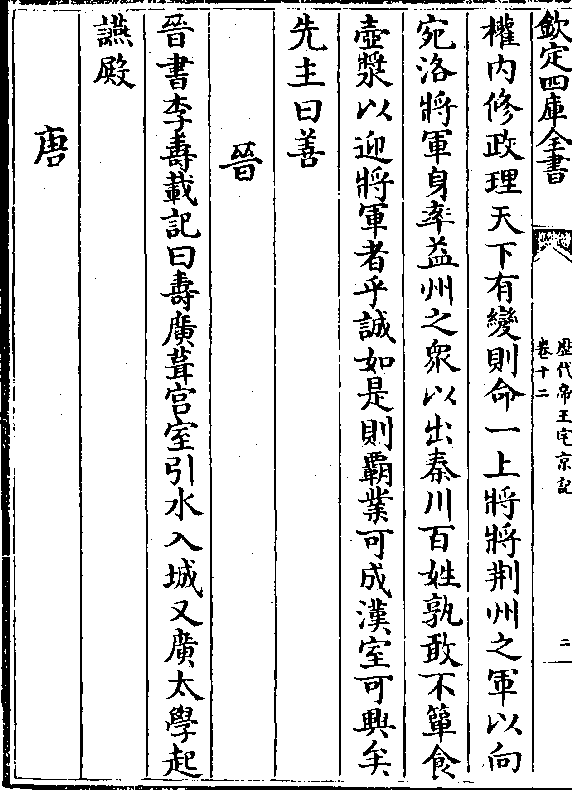 欽定四庫全書
歷代帝王宅京記
卷十二
二
權內修政理天下有變則命一上將將荆州之軍以向
宛洛將軍身率益州之衆以出秦川百姓孰敢不簞食
壺漿以迎將軍者乎誠如是則霸業可成漢室可興矣
先主曰善
晉
晉書李壽載記曰壽廣葺宮室引水入城又廣太學起
讌殿
唐